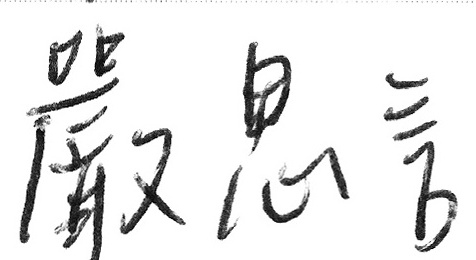 嚴思言